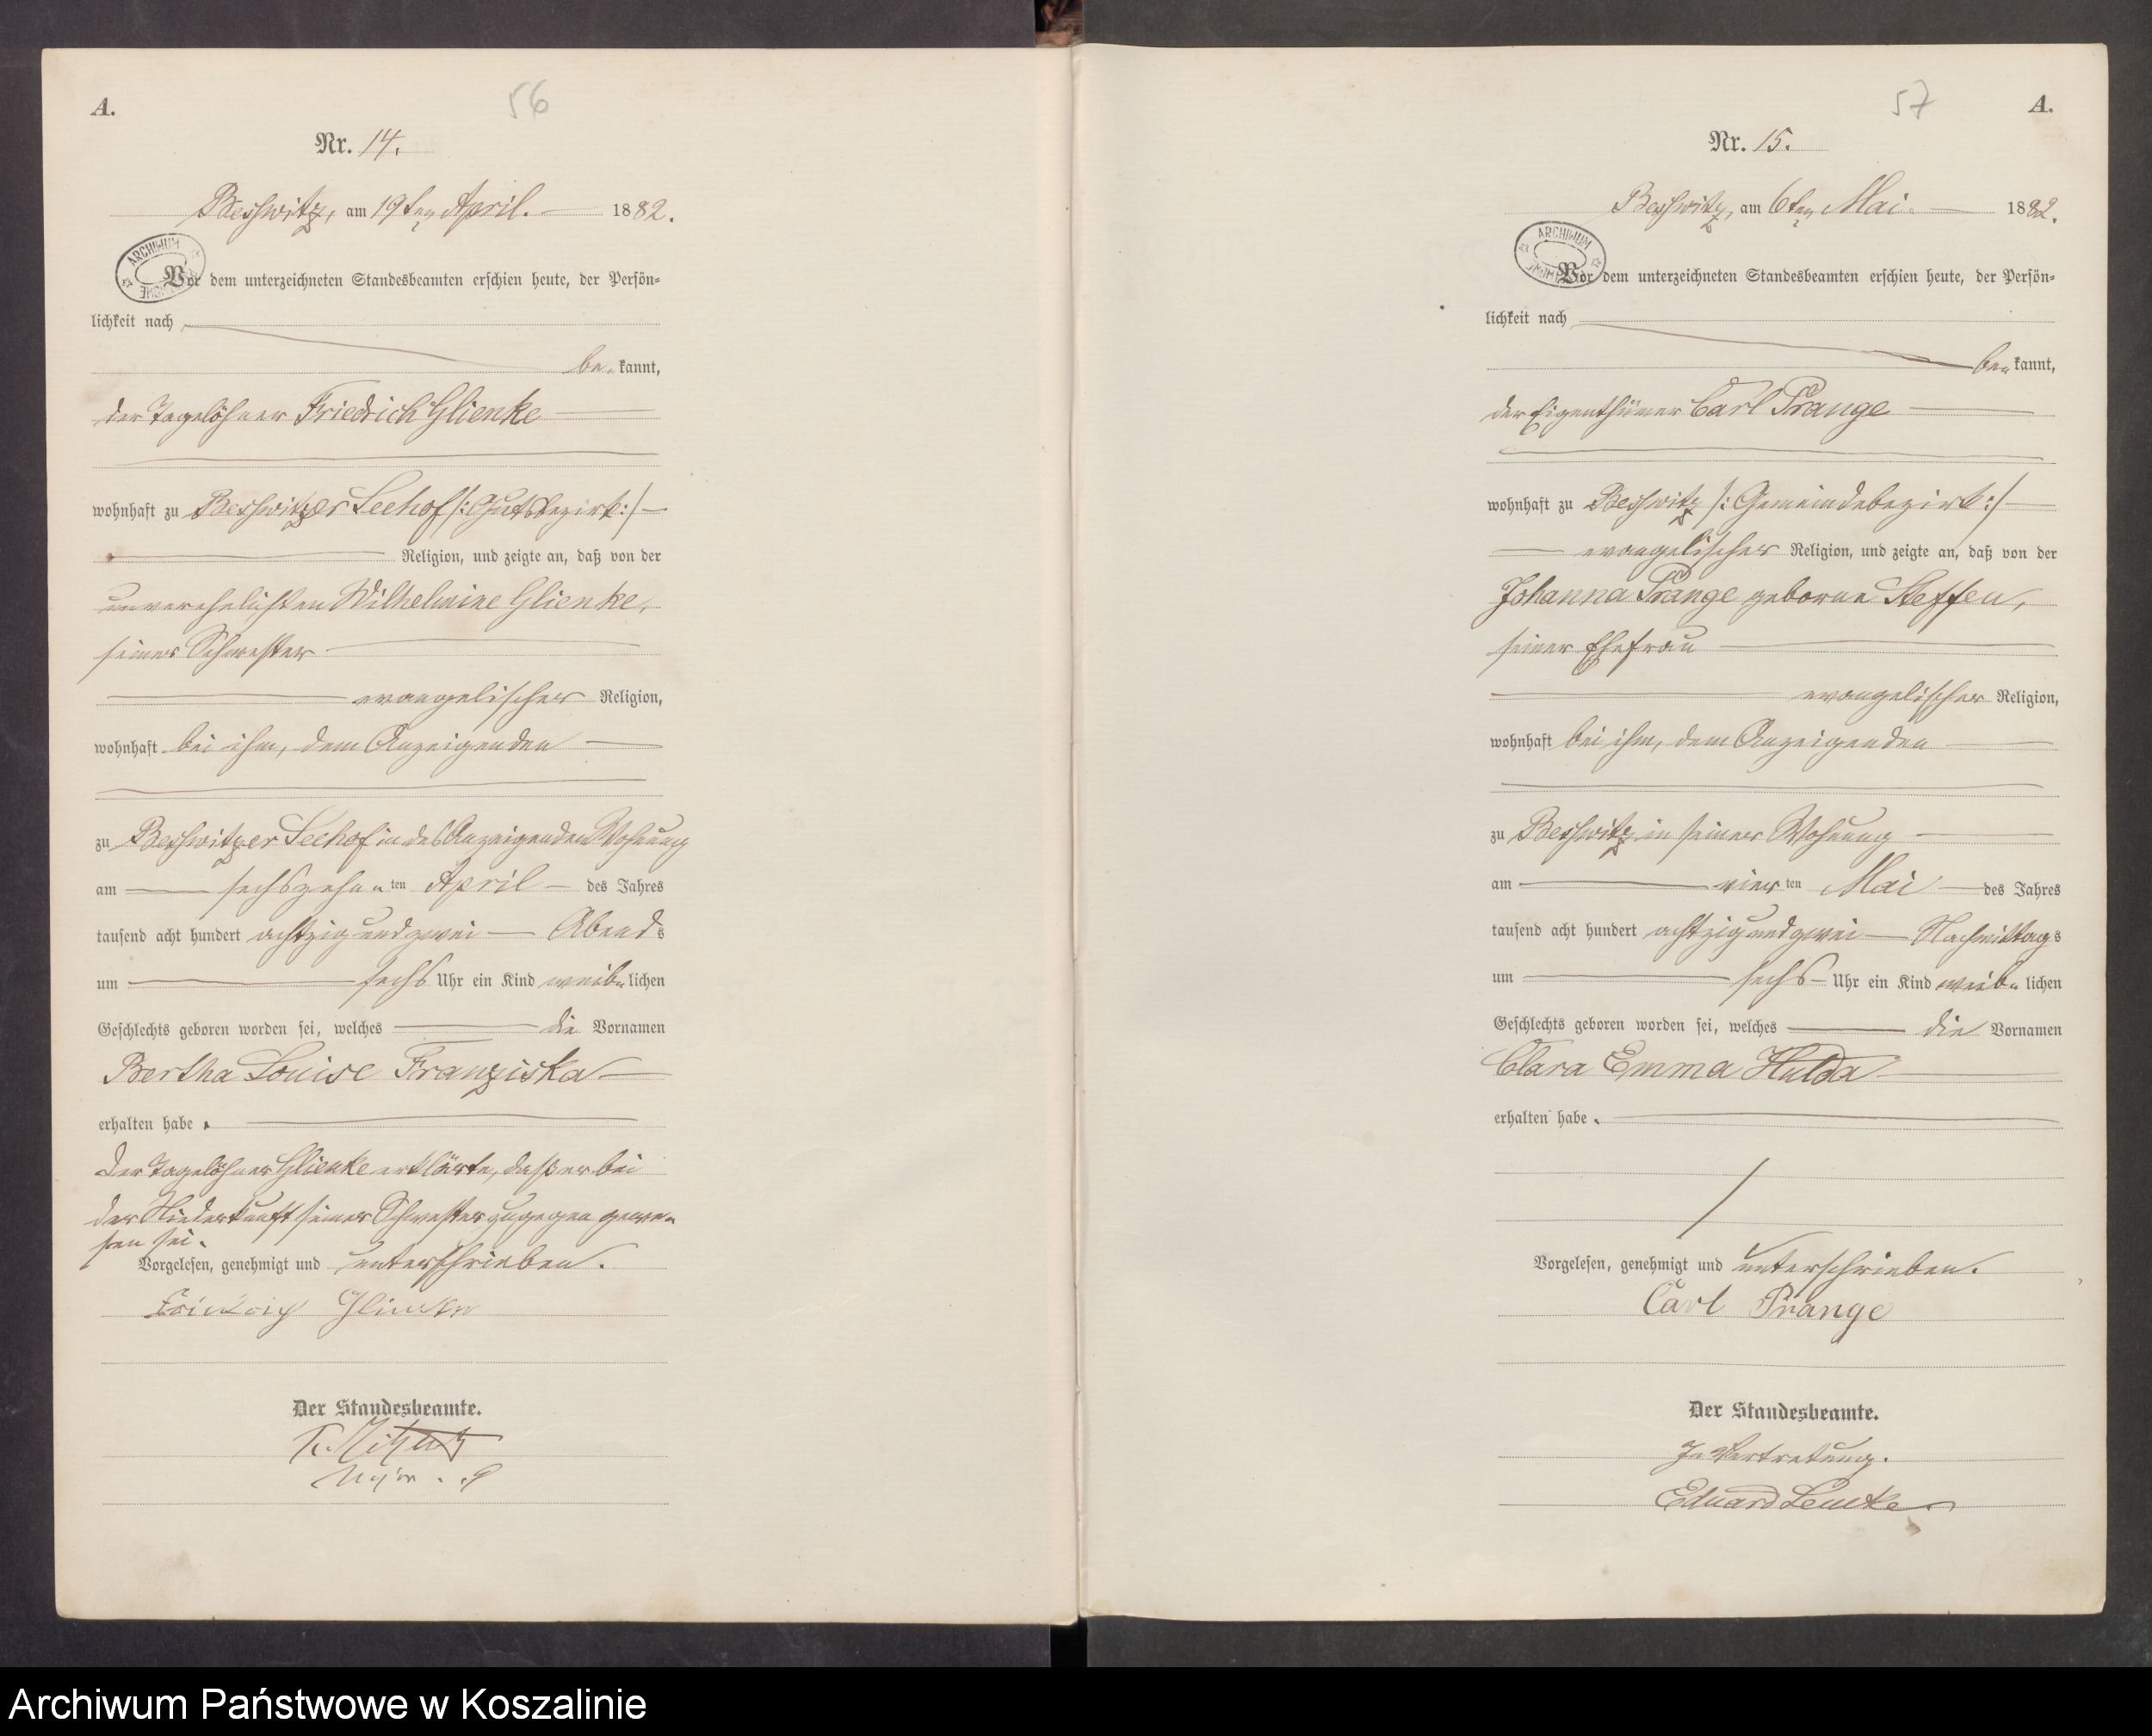 A.
56
Nr. 14.
Besswitz, am 19ten April. 1882.
ARCHIWUM
Vor dem unterzeichneten Standesbeamten erschien heute, der Persön-
lichkeit nach
be- kannt,
der Tagelöhner Friedrich Glienke
wohnhaft zu Besswitzer Seehof /: Gutsbezirk :/
Religion, und zeigte an, daß von der
unverehelichten Wilhelmine Glienke,
seiner Schwester
evangelischer Religion,
wohnhaft bei ihm, dem Anzeigenden
zu Besswitzer Seehof in des Anzeigenden Wohnung
am sechszehn- ten April des Jahres
tausend acht hundert achtzig und zwei Abends
um sechs Uhr ein Kind weib- lichen
Geschlechts geboren worden sei, welches die Vornamen
Bertha Louise Franziska
erhalten habe.
Der Tagelöhner Glienke erklärte, daß er bei
der Niederkunft seiner Schwester zugegen gewe-
sen sei.
Vorgelesen, genehmigt und unterschrieben.
Friedrich Glienke
Der Standesbeamte.
57
A.
Nr. 15.
Besswitz, am 6ten Mai 1882.
ARCHIWUM
Vor dem unterzeichneten Standesbeamten erschien heute, der Persön-
lichkeit nach
be- kannt,
der Eigenthümer Carl Prange
wohnhaft zu Besswitz /: Gemeindebezirk :/
evangelischer Religion, und zeigte an, daß von der
Johanna Prange geborne Steffen,
seiner Ehefrau
evangelischer Religion,
wohnhaft bei ihm, dem Anzeigenden
zu Besswitz in seiner Wohnung
am vier ten Mai des Jahres
tausend acht hundert achtzig und zwei Nachmittags
um sechs Uhr ein Kind weib- lichen
Geschlechts geboren worden sei, welches die Vornamen
Clara Emma Hulda
erhalten habe.
Vorgelesen, genehmigt und unterschrieben.
Carl Prange
Der Standesbeamte.
In Vertretung.
Eduard Lemke
Archiwum Państwowe w Koszalinie